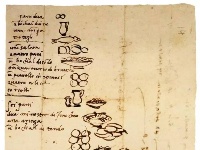 pani dua
u bochal di vino
una aringa
tortegli
una salata
quatro pani
u bochal di tondo
e u quartuccio di bruscho
u piatello di spinaci
quatro alice
tortelli
sei pani
dua minestre di finochio
una aringa
u bochal di tondo